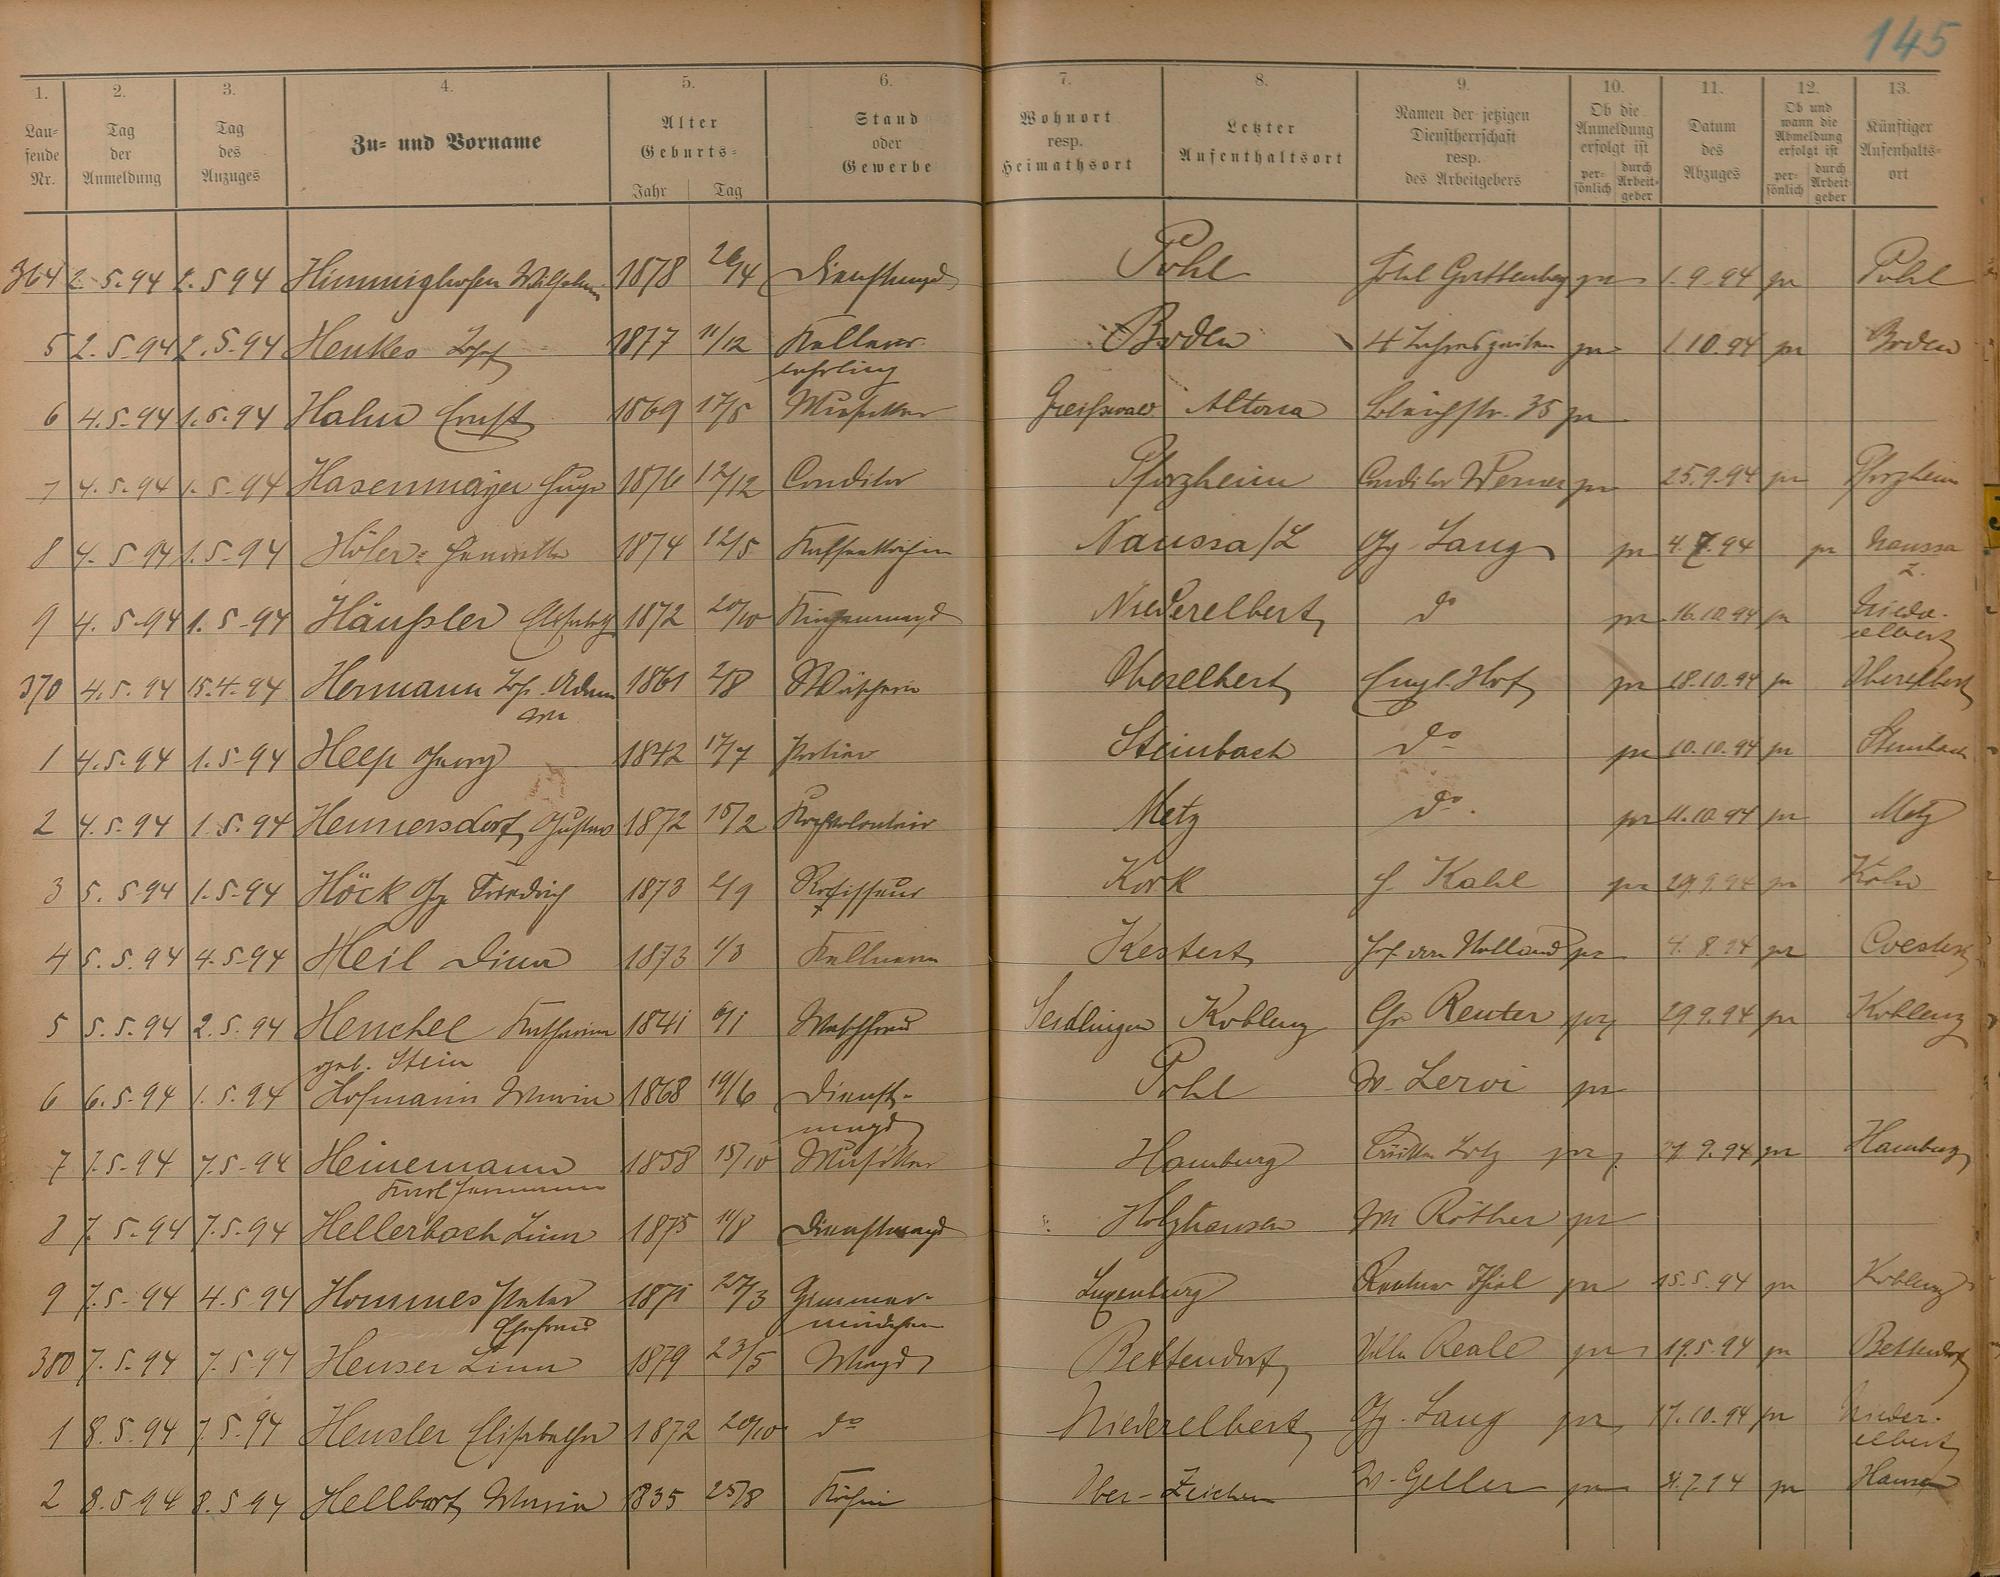 145
1. 2. 3. 4. 5. 6. 7. 8. 9. 10. 11. 12. 13.
Laufende Nr. | Tag der Anmeldung | Tag des Anzuges | Zu- und Vorname | Alter Geburts- Jahr Tag | Stand oder Gewerbe | Wohnort resp. Heimathsort | Letzter Aufenthaltsort | Namen der jetzigen Dienstherrschaft resp. des Arbeitgebers | Ob die Anmeldung erfolgt ist persönlich durch Arbeitgeber | Datum des Abzuges | Ob und wann die Abmeldung erfolgt ist persönlich durch Arbeitgeber | Künftiger Aufenthaltsort
364 2.5.94 2.5 94 Himmighofen 1878 Dienstmagd Pohl 1.9.94 pr Pohl
5 2.5.94 2.5.94 Henkes Josef 1877 11/12 Kellner- Boden 4 Jahreszeiten pr 1.10.94 pr Boden
lehrling
6 4.5.94 1.5.94 Hahn Ernst 1869 17/5 Musiker Greifswald Altona Bleichstr. 35 pr
7 4.5.94 1.5.94 Hasenmayer Hugo 1876 12/12 Conditor Pforzheim Conditor Werner pr 25.9.94 pr Pforzheim
8 4.5 94 1.5.94 Höler 1874 12/5 Naussa/L Gg. Lang pr 4.7.94 pr Naussa
L.
9 4.5.94 1.5.94 Häußler 1872 20/10 Küchenmagd Niederelbert do pr 16.10.94 pr Nieder-
elbert
370 4.5.94 15.4.94 Hermann Jos. Adam 1861 2/8 Wäscherin Oberelbert Engl. Hof pr 18.10.94 pr Oberelbert
1 4.5.94 1.5.94 Heep Georg 1842 17/7 Portier Steinbach do pr 10.10.94 pr Steinbach
2 4.5.94 1.5.94 Hennersdorf Gustav 1872 15/2 Kochvolontair Metz do. pr 11.10.94 pr Metz
3 5.5.94 1.5.94 Höck Gg Friedrich 1873 2/9 Kork Kahl pr 29.9.94 pr
4 5.5.94 4.5.94 Heil Dina 1873 1/3 Kellnerin Kestert Hof von Holland pr 4.8.94 pr
5 5.5.94 2.5.94 Henchel Katharina 1841 6/1 Waschfrau Koblenz Reuter pr 29.9.94 pr Koblenz
geb. Stein
6 6.5.94 1.5.94 Hofmann Maria 1868 19/6 Dienst- Pohl pr
magd
7 7.5.94 7.5.94 Heinemann 1858 15/10 Musiker Hamburg pr 9.94 pr Hamburg
Karl Hermann
8 7.5.94 7.5.94 Hellerbach Lina 1875 11/8 Dienstmagd Holzhausen M Röther pr
9 7.5.94 4.5.94 Hommes Peter 1871 27/3 Zimmer- Luxenburg Rentner Thiel pr 15.5.94 pr Koblenz
Ehefrau mädchen
380 7.5.94 7.5.94 Heuser Lina 1879 23/5 Magd Bettendorf Villa Reale pr 19.5.94 pr Bettendorf
1 8.5.94 7.5.94 Heusler Elisabetha 1872 20/10 do Niederelbert Gg. Lang pr 17.10.94 pr Nieder-
elbert
2 8.5.94 8.5.94 Hellbart Maria 1835 25/8 Köchin W. Geller pr pr Hausen